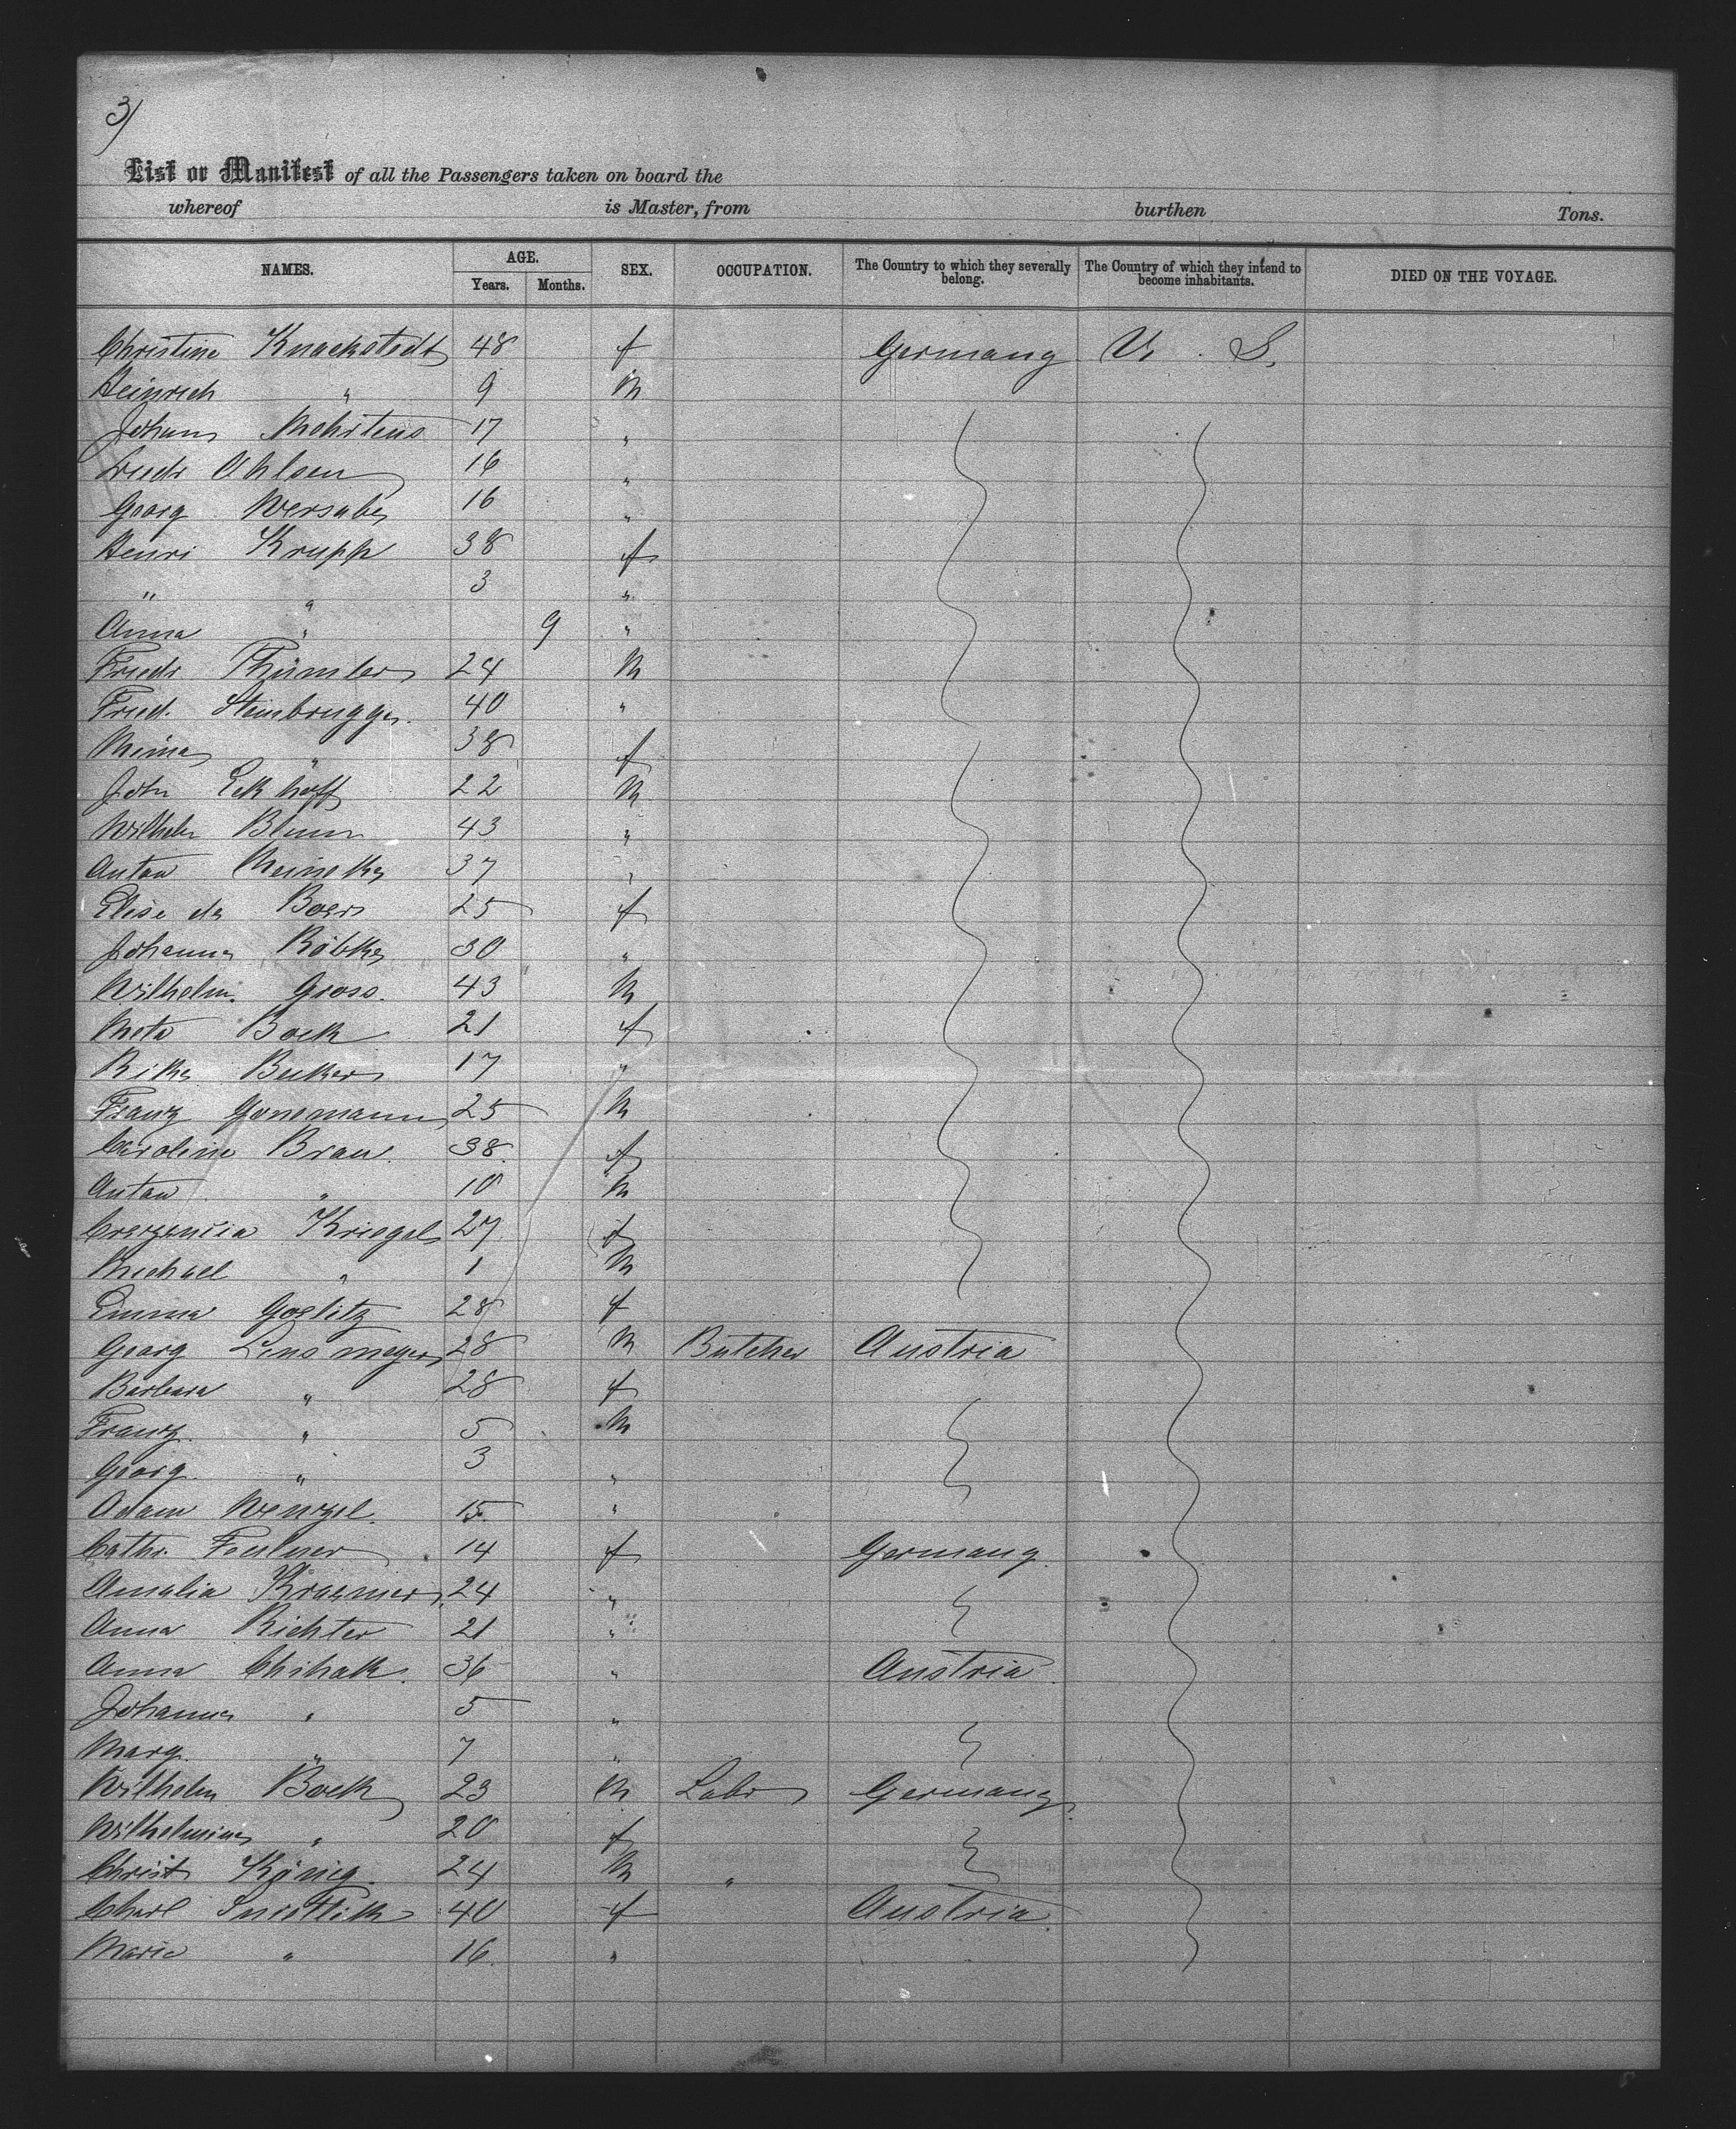 3)
List or Manifest of all the Passengers taken on board the
whereof is Master, from burthen Tons.
NAMES. AGE. Years. Months. SEX. OCCUPATION. The Country to which they severally belong. The Country of which they intend to become inhabitants. DIED ON THE VOYAGE.
Christine Knackstedt 48 f Germany U. S.
Heinrich " 9 M
Johann Mehrtens 17 "
Diedr Ahlsen 16 "
Georg Wersabe 16 "
Henri Krupp 38 f
" " 3 "
Anna " 9 "
Friedr Thümler 24 M
Fried. Steinbrugge 40 "
Meina " 38 f
John Eckhoff 22 M
Wilhelm Blum 43 "
Anton Meineke 37 "
Elise de Boer 25 f
Johanna Röbke 30 "
Wilhelm. Gross. 43 M
Meta Bock 21 f
Rike Buker 17 "
Franz Gonemann 25 M
Caroline Brau. 38. f
Anton " 10 M
Crezencia Kriegel 27 f
Michael " 1 M
Emma Goelitz 28 f
Georg Linsmeyer 28 M Butcher Austria
Barbara " 28 f
Franz. " 5 M
Georg. " 3 "
Adam Wenzel. 15 "
Cathr. 14 f Germany.
Amalia Kraemer 24 "
Anna Richter 21 "
Anna Chihak. 36 " Austria.
Johanna " 5 "
Marg. " 7 "
Wilhelm Bock 23 M Labr Germany
Wilhelmine " 20 f
Christ König. 24 M "
Charl 40 f Austria.
Marie " 16. "